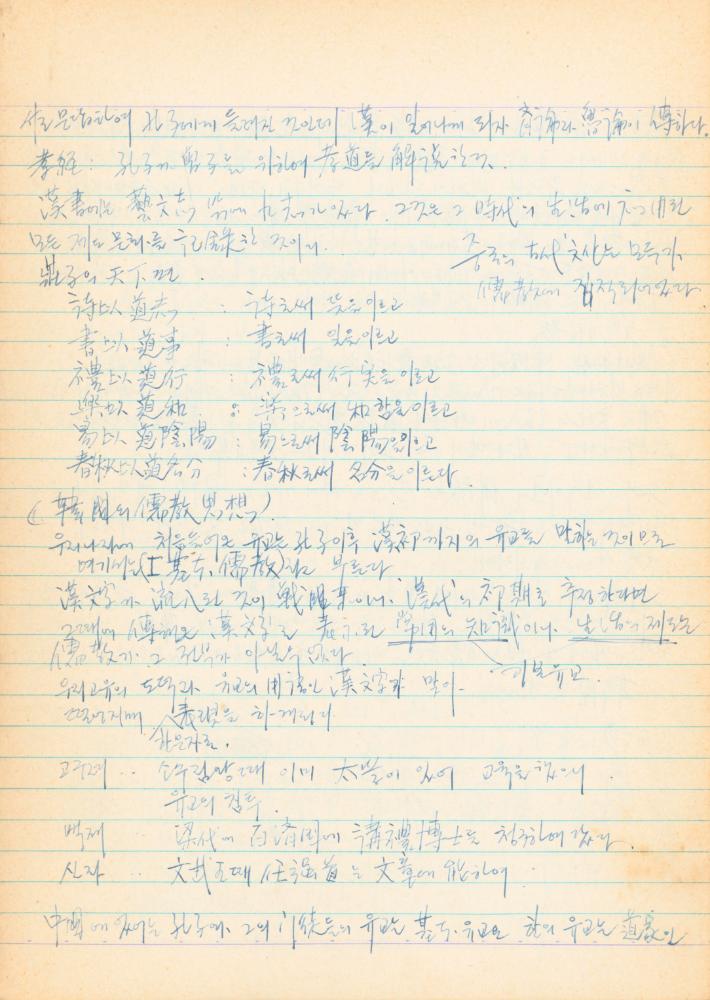 孔子에게 들려진 것인데 漢이 일어나게 되자 齊論과 魯論이 傳하다.
孝經: 孔子가 曾子를 위하여 孝道를 解說한 것.
漢書에는 藝文志 밖에 九流가 있었다. 그것은 그 時代의 生活에 利用된
모든 제도 문화를 記錄한 것이다.
중국의 古代文化는 모두가
儒教에 집적되어있다.
莊子의 天下편.
詩以道志 : 詩로써 뜻을 이르고
書以道事 : 書로써 일을 이르고
禮以道行 : 禮로써 行実을 이르고
樂以道和 : 楽으로써 和合을 이르고
易以道陰陽 : 易으로써 陰陽을 이르고
春秋以道名分 : 春秋로써 名分을 이르다.
(韓國의 儒教思想).
우리나라에 처음 들어온 유교는 孔子이후 漢初까지의 유교를 말하는 것이므로
여기서는 (基本儒教)라고 부른다
漢文字가 流入된 것이 戦國末이나 漢代의 初期로 추정한다면
그때에 傳해온 漢文字로 表示된 学問의 知識이나 生活의 제도는
儒教가 그 전부가 아닐수 없다.
기본유교.
우리 고유의 도덕과 유교의 用語인 漢文字가 맞아
떨어지며 表現을 하게 되다
한문자로.
고구려 .. 소수림왕때 이미 太学이 있어 교육을 했으니.
유교의 침투.
백제 .. 梁代에 百済国에 講禮博士를 청구하여 갔다.
신라 .. 文武王때 任强首는 文章에 能하여
中國에 있어는 孔子에, 그의 門徒들의 유교는 基本유교요 한의 유교는 道家인